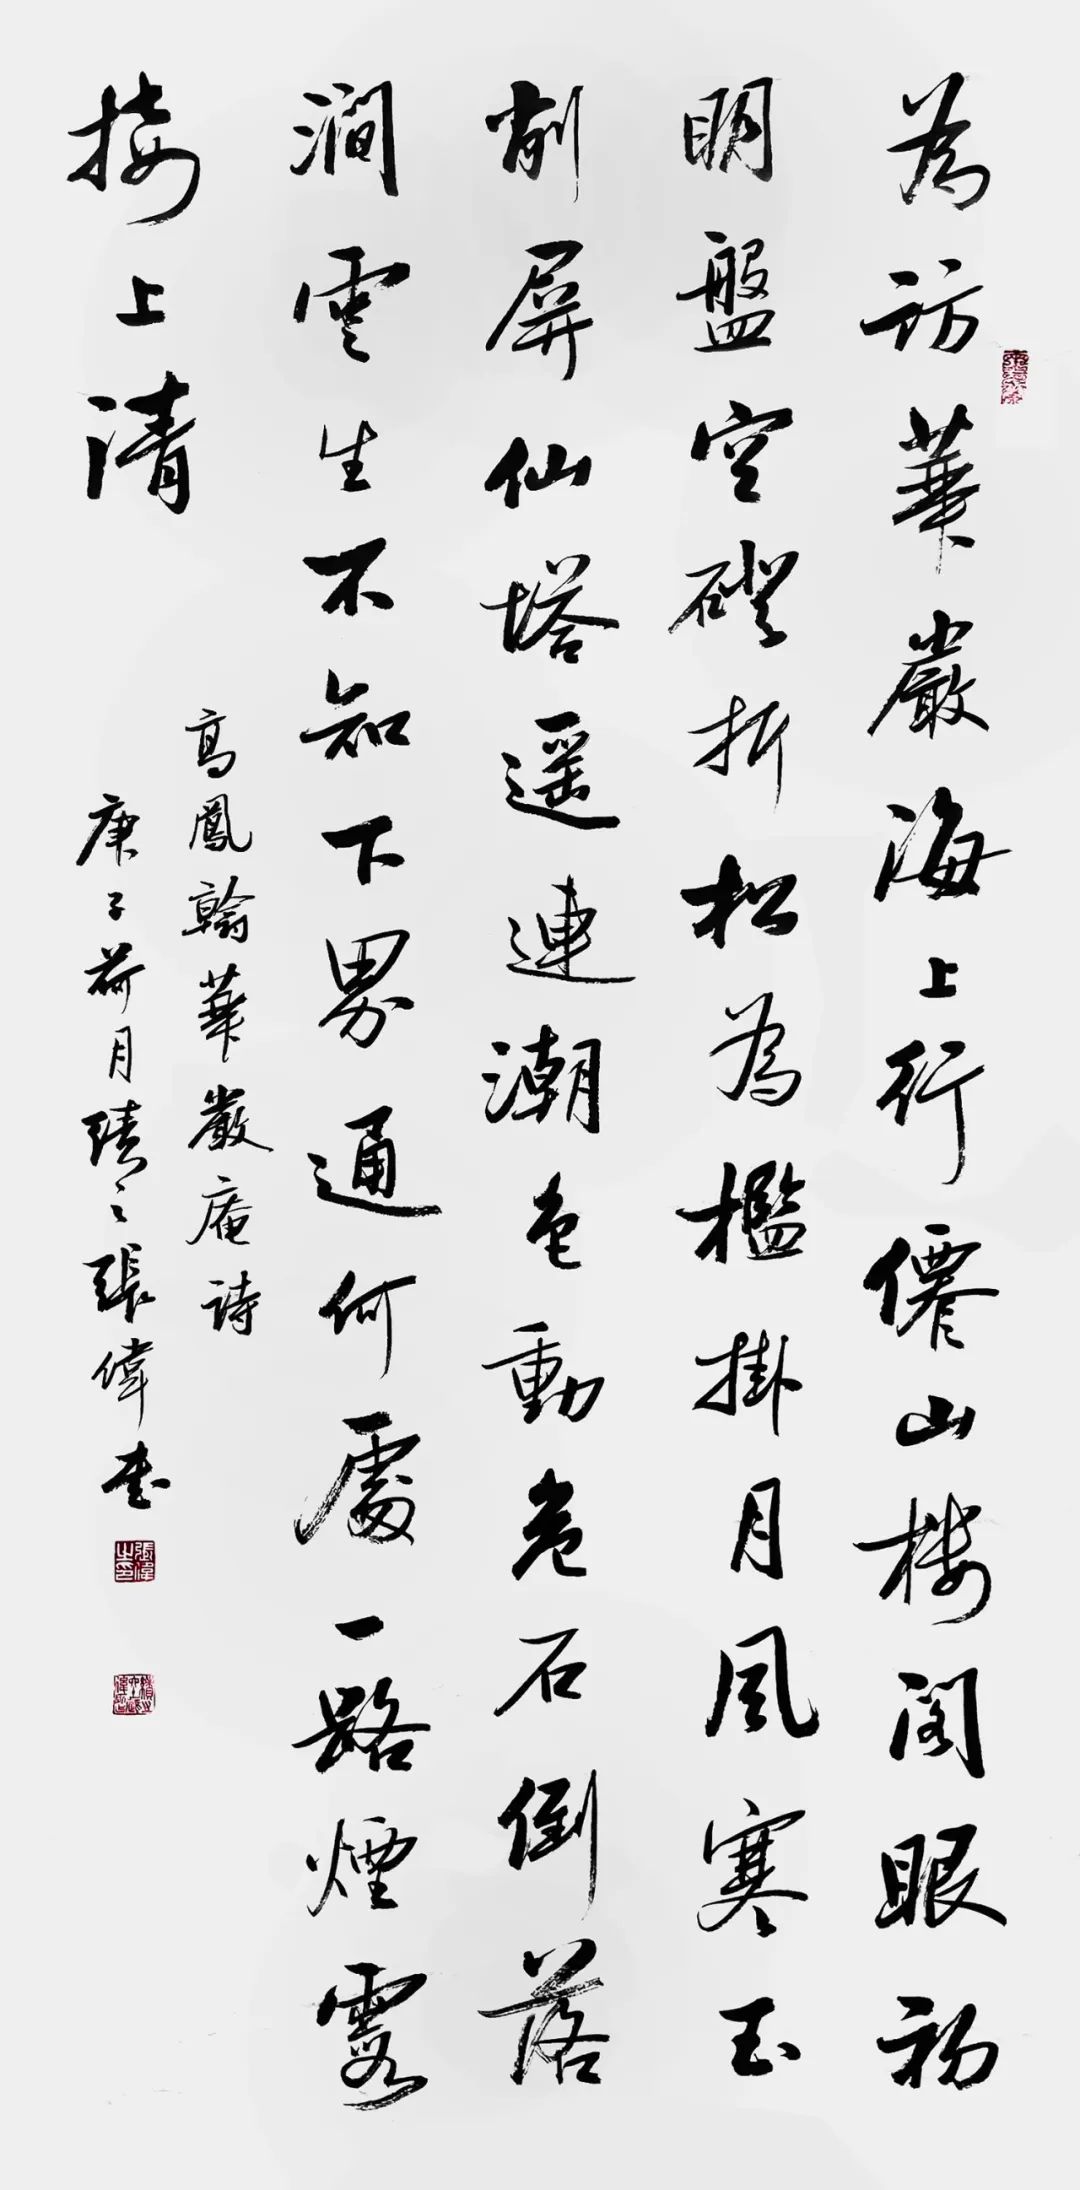 為訪華嚴海上行僊山楼阁眼初
明盤空磴折松為檻掛月風寒玉
削屏仙塔遥連潮色動危石倒落
澗雲生不知下界通何處一路煙霞
接上清
高鳳翰華嚴庵詩
庚子荷月績之張偉書
張偉之印